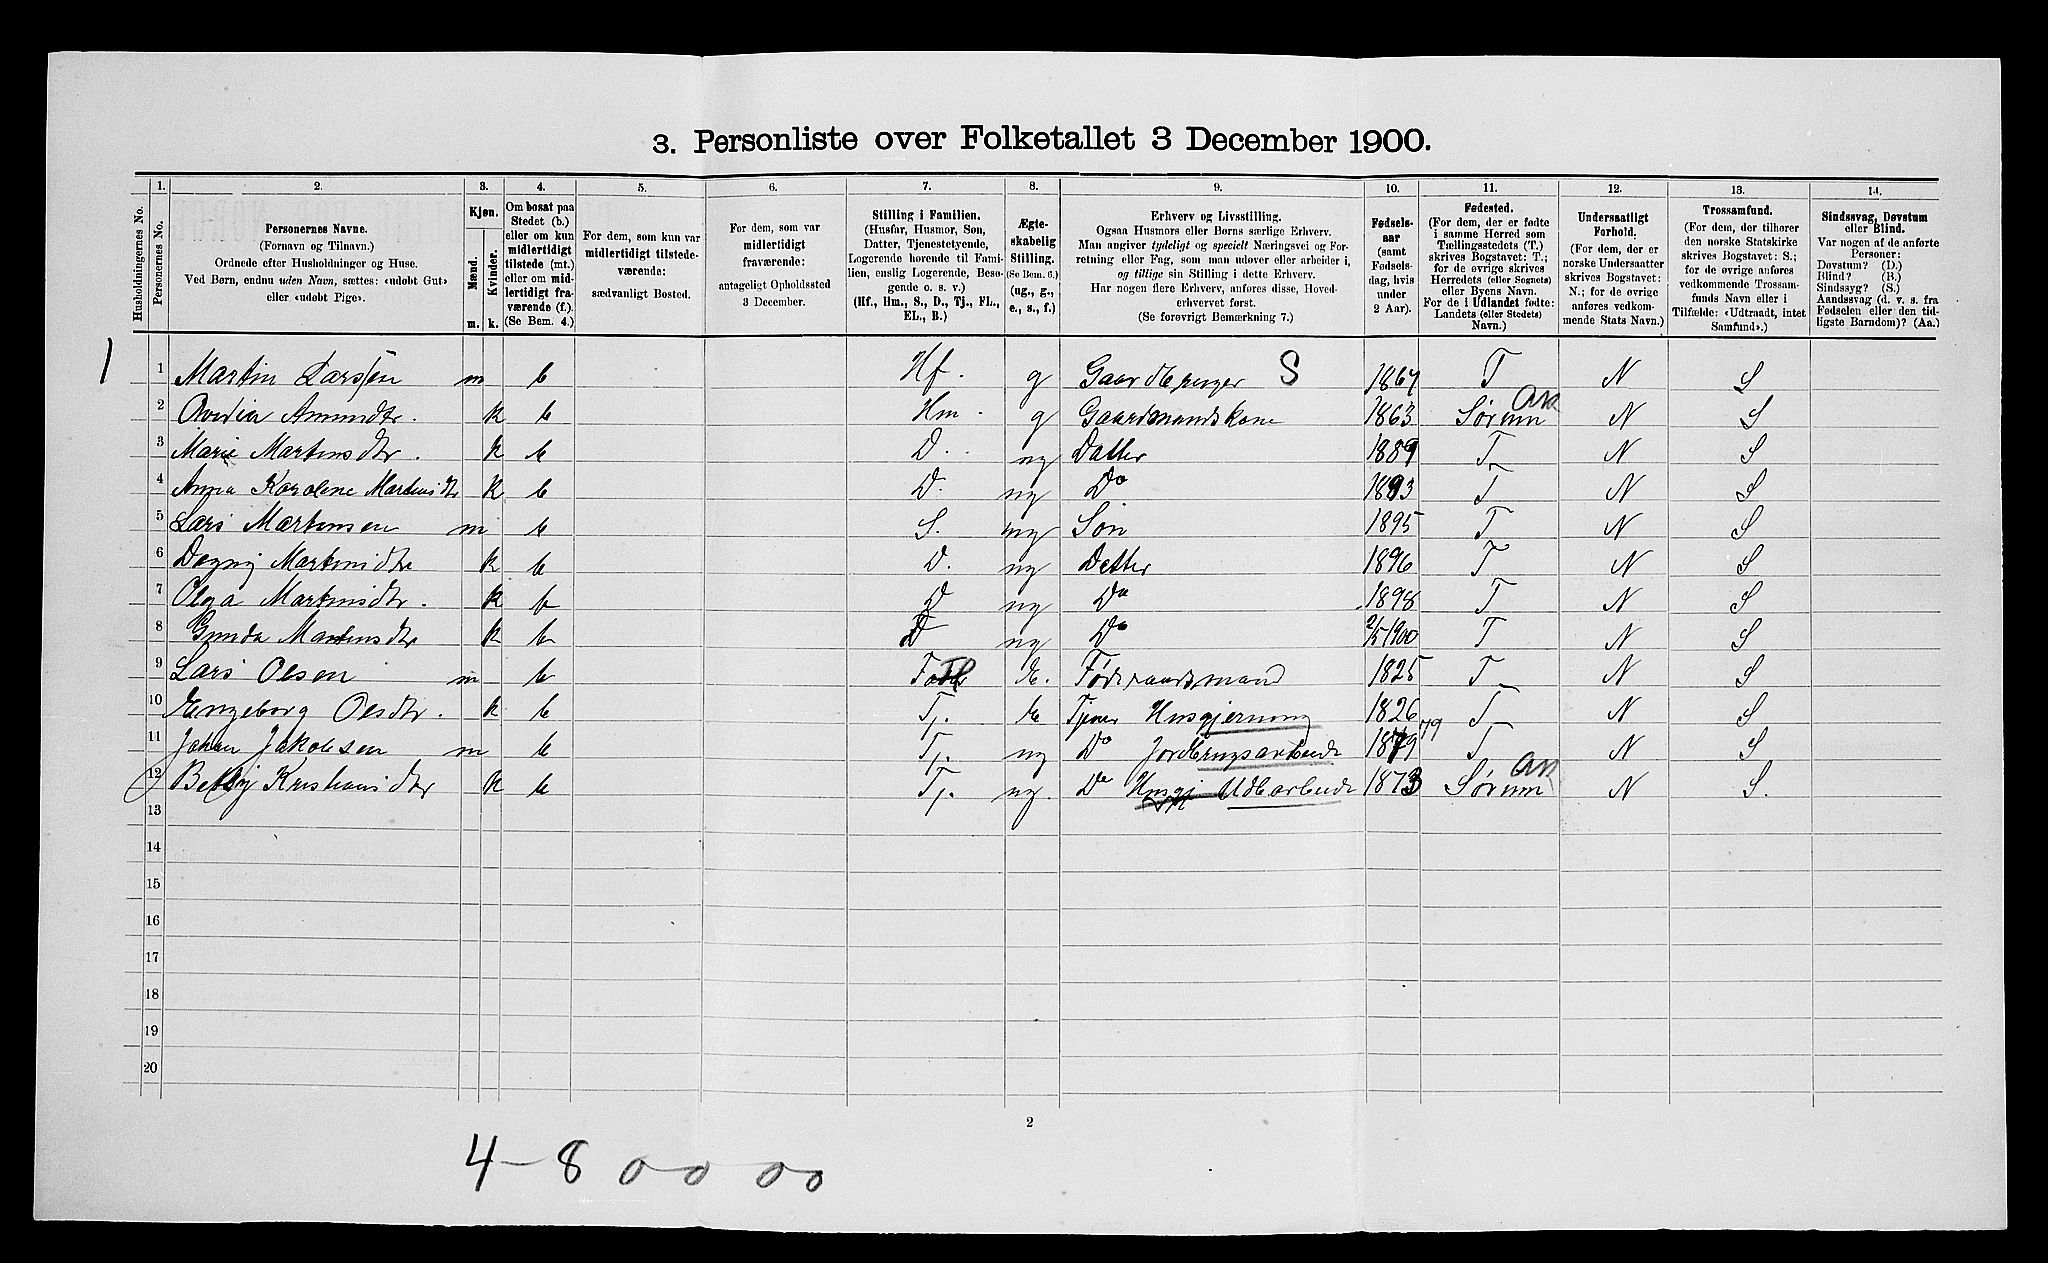 3. Personliste over Folketallet 3 December 1900.
Husholdningernes No.
1. 2. 3. 4. 5. 6. 7. 8. 9. 10. 11. 12. 13. 14.
Personernes No.
Personernes Navne.
(Fornavn og Tilnavn.)
Ordnede efter Husholdninger og Huse.
Ved Børn, endnu uden Navn, sættes: «udøbt Gut»
eller «udøbt Pige».
Kjøn.
Mænd.
Kvinder.
m. k.
Om bosat paa
Stedet (b.)
eller om kun
midlertidigt
tilstede (mt.)
eller om mid-
lertidigt fra-
værende (f.).
(Se Bem. 4.)
For dem, som kun var
midlertidigt tilstede-
værende:
sædvanligt Bosted.
For dem, som var
midlertidigt
fraværende:
antageligt Opholdssted
3 December.
Stilling i Familien.
(Husfar, Husmor, Søn,
Datter, Tjenestetyende,
Logerende hørende til Fami-
lien, enslig Logerende, Besø-
gende o. s. v.)
(Hf., Hm., S., D., Tj., FL.,
EL., B.)
Ægte-
skabelig
Stilling.
(Se Bem. 6.)
(ug., g.,
e., s., f.)
Erhverv og Livsstilling.
Ogsaa Husmors eller Børns særlige Erhverv.
Man angiver tydeligt og specielt Næringsvei og For-
retning eller Fag, som man udøver eller arbeider i,
og tillige sin Stilling i dette Erhverv.
Har nogen flere Erhverv, anføres disse, Hoved-
erhvervet først.
(Se forøvrigt Bemærkning 7.)
Fødsels-
aar
(samt
Fødsels-
dag, hvis
under
2 Aar).
Fødested.
(For dem, der er fødte
i samme Herred som
Tællingsstedets (T.)
skrives Bogstavet: T.;
for de øvrige skrives
Herredets (eller Sognets)
eller Byens Navn.
For de i Udlandet fødte:
Landets (eller Stedets)
Navn.)
Undersaatligt
Forhold.
(For dem, der er
norske Undersaatter
skrives Bogstavet:
N.; for de øvrige
anføres vedkom-
mende Stats Navn.)
Trossamfund.
(For dem, der tilhører
den norske Statskirke
skrives Bogstavet: S.;
for de øvrige anføres
vedkommende Trossam-
funds Navn eller i
Tilfælde: «Udtraadt, intet
Samfund».)
Sindssvag, Døvstum
eller Blind.
Var nogen af de anførte
Personer:
Døvstum? (D.)
Blind? (B.)
Sindssyg? (S.)
Aandssvag (d. v. s. fra
Fødselen eller den tid-
ligste Barndom)? (Aa.)
1 1 Martin Larsen m b Hf. g Gaardbruger S 1867 T N S
2 Ovidia Amundtr. k b Hm. g Gaardmandskone 1863 Sørum Ak N S
3 Marie Martinsdtr. k b D. ug Datter 1889 T N S
4 Anna Karoline Martinsdtr k b D. ug Do 1893 T N S
5 Lars Martinsen m b S. ug Søn 1895 T N S
6 Dagny Martinsdtr k b D. ug Datter 1896 T N S
7 Olga Martinsdtr. k b D ug Do 1898 T N S
8 Gunda Martinsdtr k b D ug Do 2/5 1900 T N S
9 Lars Olsen m b FL E. Føderaadsmand 1825 T N S
10 Engeborg Olsdtr. k b Tj. E Tjener Husgjerning 1826 T N S
11 Johan Jakobsen m b Tj. ug Do Jordbrugsarbeide 1879 79 T N S
12 Betsy Kristiansdtr k b Tj. ug. Do Husgj Udearbeide 1873 Sørum Ak N S.
13
14
15
16
17
18
19
20
2
4 – 8 0 0 0 0